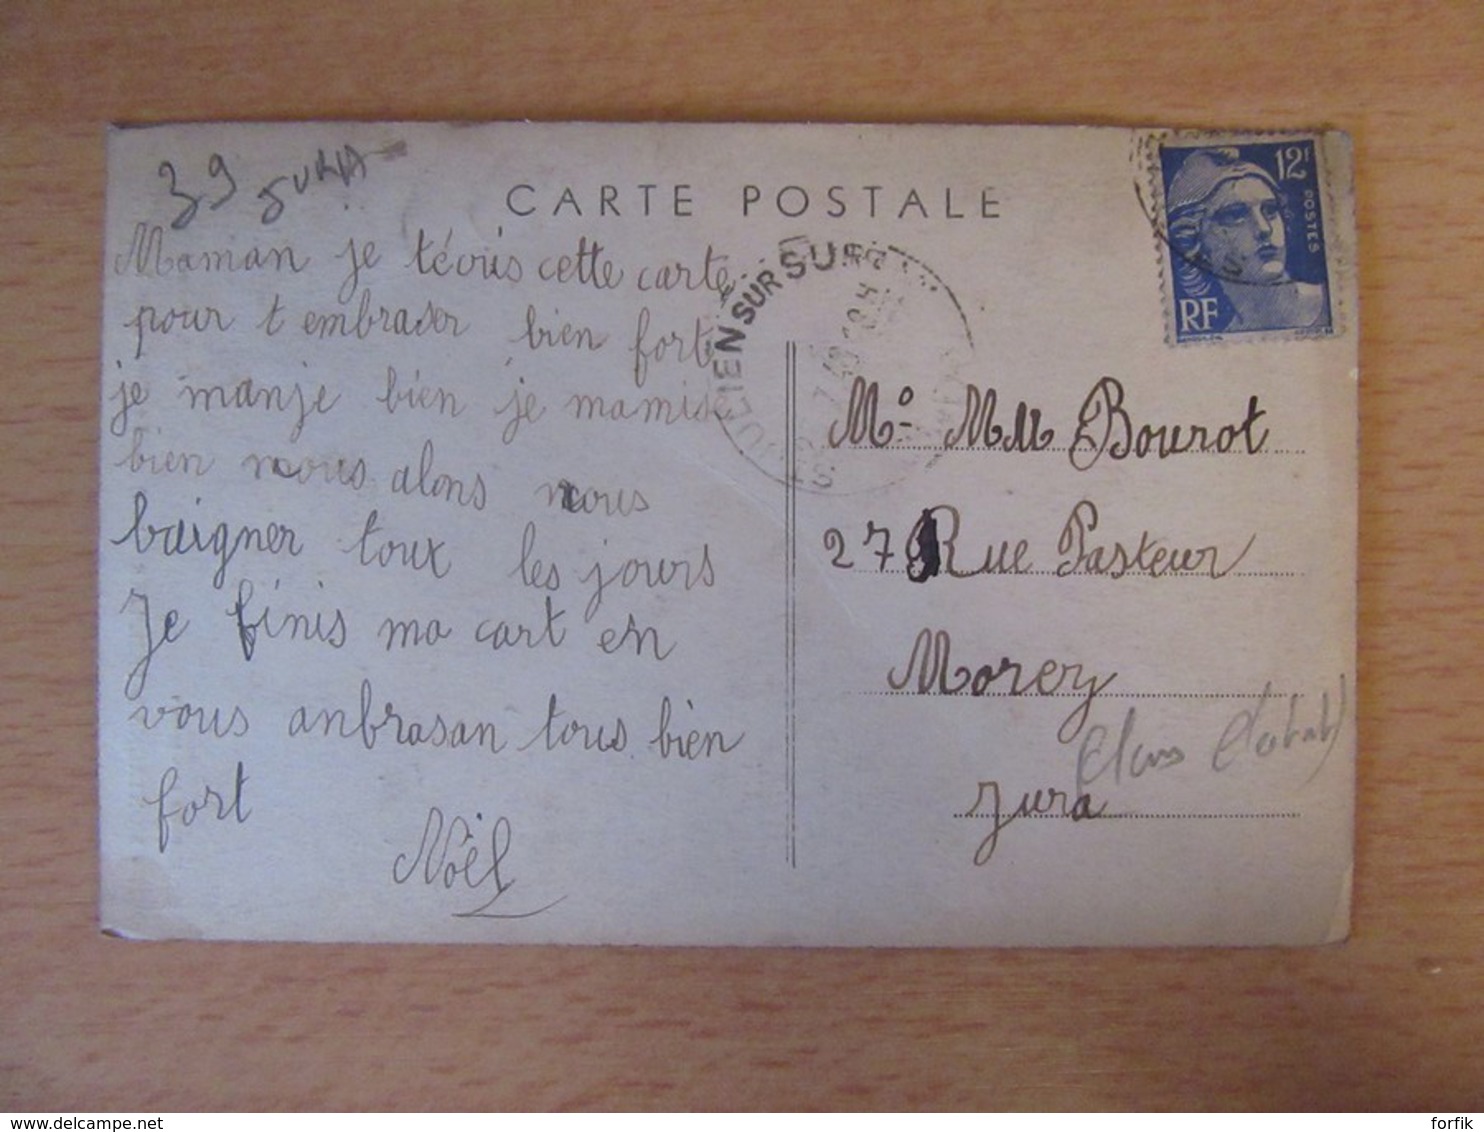 39 JURA
CARTE POSTALE
Maman je técris cette carte
pour t embraser bien fort
je manje bien je mamise
bien nous alons nous
baigner toux les jours
Je finis ma cart en
vous anbrasan tous bien
fort
Noël
ST JULIEN SUR SURAN
12F
POSTES
RF
Mr. Mm Bourot
27 Rue Pasteur
Morez
Jura
forfik